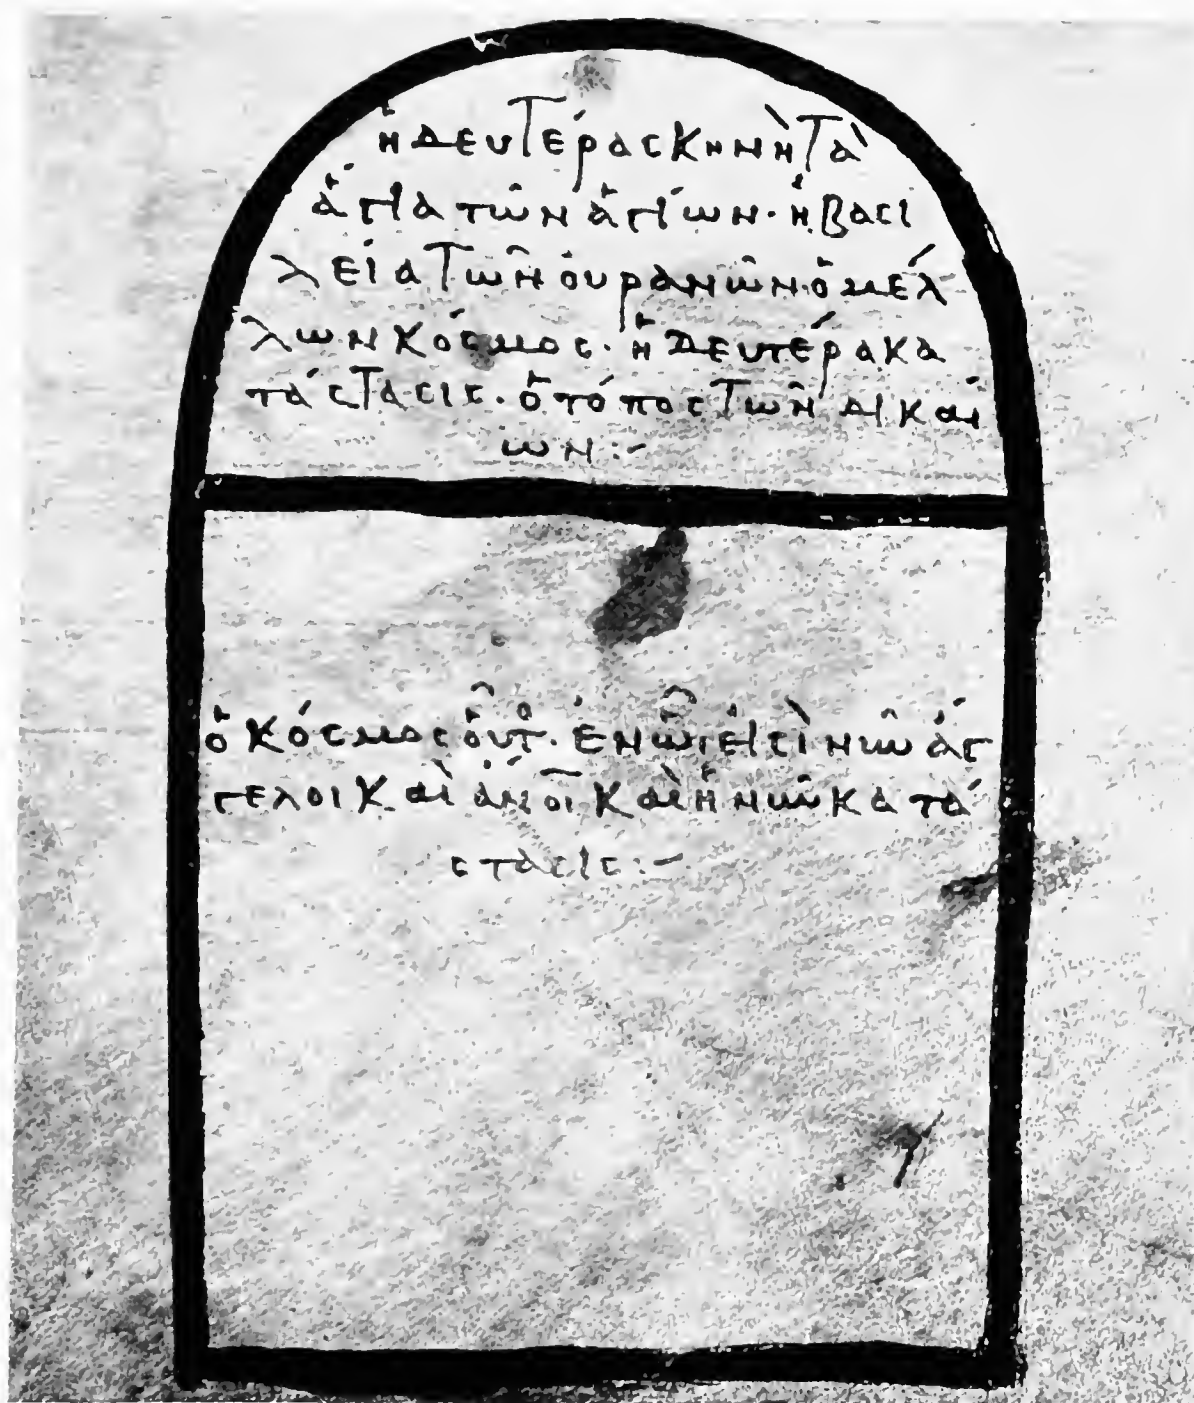 ἡ δευτέρα σκηνὴ τὰ
ἅγια τῶν ἁγίων· ἡ βασι
λεία τῶν οὐρανῶν· ὁ μέλ
λων κόσμος· ἡ δευτέρα κα
τάστασις· ὁ τόπος τῶν δικαί
ων :~
ὁ κόσμος οὗτ· ἐν ὧ εἰσὶ νῦν ἄγ
γελοι καὶ ἄνοι καὶ ἡ νῦν κατά
στασις :~